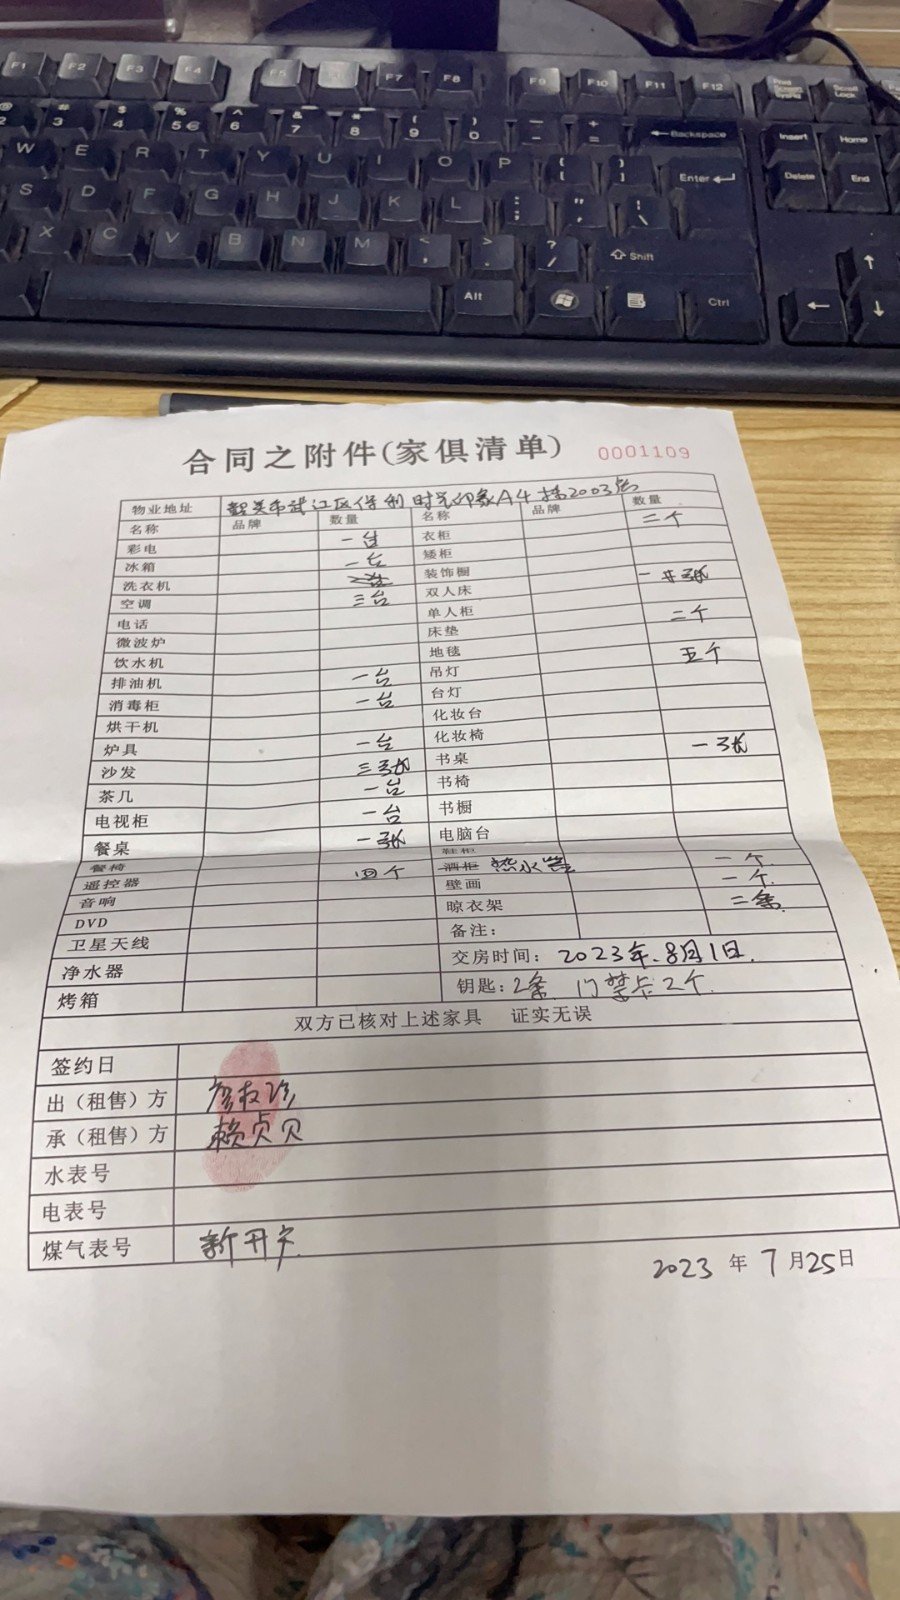 F1 F2 F3 F4 F5 F7 F8 F9 F10 F11 F12 Print Screen SysRq Scroll Lock
@ 2 # 3 $ 4 % 5 € ^ 6 & 7 * 8 ( 9 ) 0 — - + = ← Backspace Insert Home
W E R T Y U I O P { [ } ] Enter Delete End
S D F G H J K L : ; " ' | \
X C V B N M < , > . ? / ⇧ Shift ↑
Alt Ctrl ← ↓
合同之附件(家俱清单) 0001109
物业地址 韶关市武江区保利时光印象A4栋2003房
名称 品牌 数量 名称 品牌 数量
彩电 一台 衣柜 三个
冰箱 一台 矮柜
洗衣机 装饰橱
空调 三台 双人床
电话 单人柜
微波炉 床垫 二个
饮水机 地毯
排油机 一台 吊灯 五个
消毒柜 一台 台灯
烘干机 化妆台
炉具 一台 化妆椅
沙发 三张 书桌 一张
茶几 一台 书椅
电视柜 一台 书橱
餐桌 一张 电脑台
餐椅 四个 鞋柜 一个
遥控器 酒柜 热水器 一个
音响 壁画
DVD 晾衣架 二条
卫星天线 备注：
净水器 交房时间：2023年.8月1日.
烤箱 钥匙：2条、门禁卡2个
双方已核对上述家具 证实无误
签约日
出（租售）方
承（租售）方 赖贞贝
水表号
电表号
煤气表号 新开户
2023 年 7 月25日